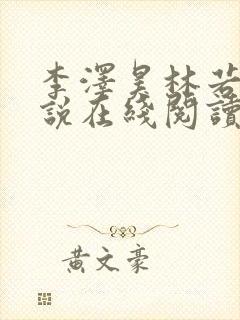 李澤昊林若
說在綫閱讀
黃文豪